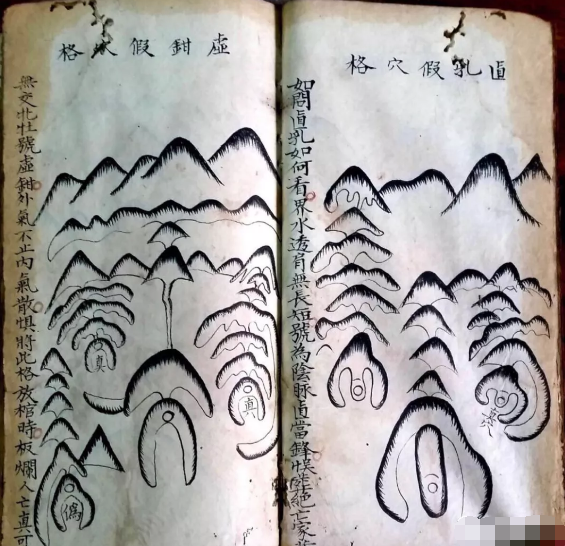 直乳假穴格
如問直乳如何看界水透肩無長短號為陰脉直當鋒悞葬絕亡家
真穴
虛鉗假穴格
真
真
僞
無交牝牡號虛鉗外氣不止內氣散惧將此格放棺時板爛人亡真可